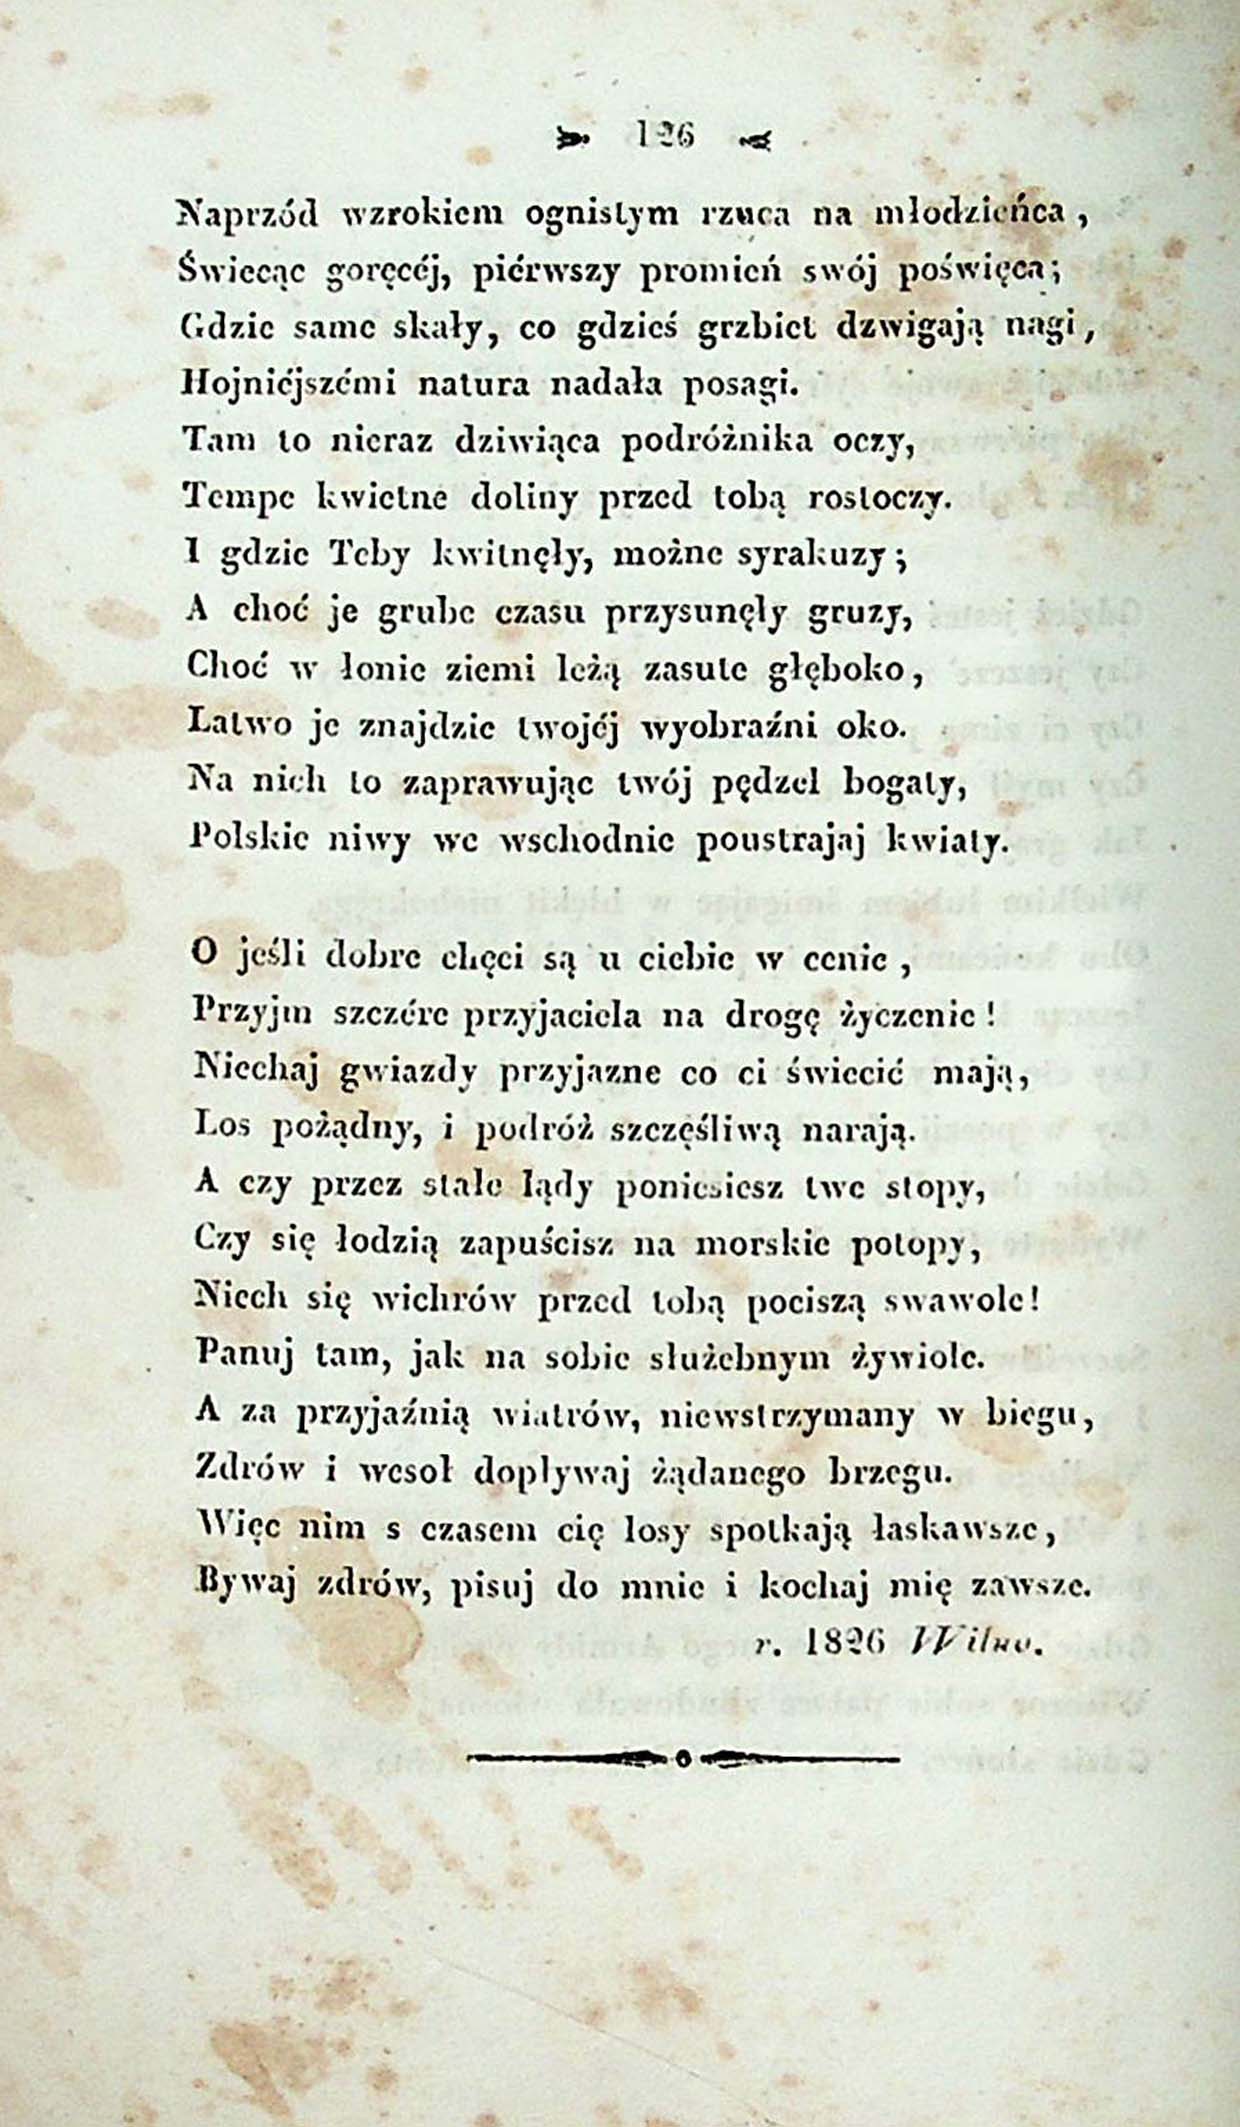 126
Naprzód wzrokiem ognistym rzuca na młodzieńca,
Świecąc goręcéj, piérwszy promień swój poświęca;
Gdzie same skały, co gdzieś grzbiet dzwigają nagi,
Hojniéjszémi natura nadała posagi.
Tam to nieraz dziwiąca podróżnika oczy,
Tempe kwietne doliny przed tobą roztoczy.
I gdzie Teby kwitnęły, możne syrakuzy;
A choć je grube czasu przysunęły gruzy,
Choć w łonie ziemi leżą zasute głęboko,
Łatwo je znajdzie twojéj wyobraźni oko.
Na nich to zaprawując twój pędzel bogaty,
Polskie niwy we wschodnie poustrajaj kwiaty.
O jeśli dobre chęci są u ciebie w cenie,
Przyjm szczére przyjaciela na drogę życzenie!
Niechaj gwiazdy przyjazne co ci świecić mają,
Los pożądny, i podróż szczęśliwą narają.
A czy przez stałe lądy poniesiesz twe stopy,
Czy się łodzią zapuścisz na morskie potopy,
Niech się wichrów przed tobą pociszą swawole!
Panuj tam, jak na sobie służebnym żywiole.
A za przyjaźnią wiatrów, niewstrzymany w biegu,
Zdrów i wesoł dopływaj żądanego brzegu.
Więc nim s czasem cię losy spotkają łaskawsze,
Bywaj zdrów, pisuj do mnie i kochaj mię zawsze.
r. 1826 Wilno.